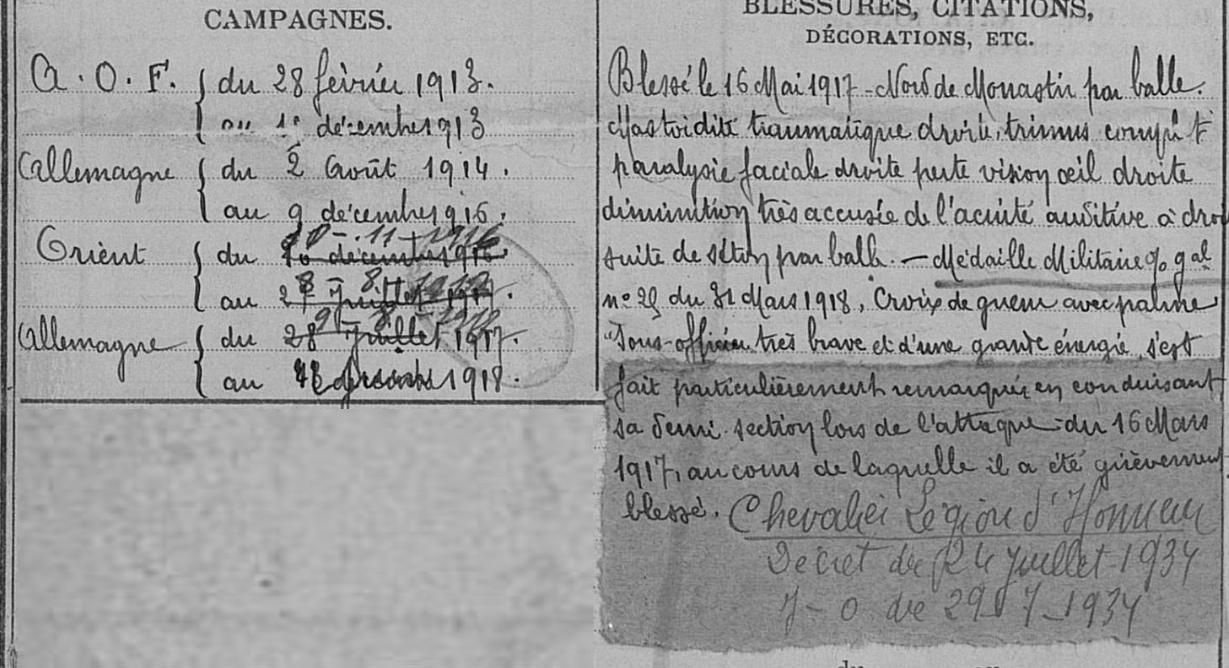 CAMPAGNES.
A. O. F. { du 28 février 1913.
au 1er décembre 1913
Allemagne { du 2 Août 1914.
au 9 décembre 1916.
10 - 11 - 1916
Orient { du 10 décembre 1916
8 - 8 -
au 27 Juillet 1917.
9 - 8 -
Allemagne { du 28 Juillet 1917.
au 1918.
BLESSURES, CITATIONS,
DÉCORATIONS, ETC.
Blessé le 16 Mai 1917 - Nord de Monastir par balle.
Mastoidite traumatique droite, trismus
paralysie faciale droite perte vision œil droite
diminution très accusée de l'acuité auditive à droi
suite de séton par balle. — Médaille Militaire
n° 29 du 31 Mars 1918, Croix de guerre avec palme
"Sous-officier très brave et d'une grande énergie, s'est
fait particulièrement remarquer en conduisant
sa demi-section lors de l'attaque du 16 Mars
1917, au cours de laquelle il a été grièvement
blessé. Chevalier Légion d'Honneur
Décret du 24 juillet 1934
J-O de 29-7-1934
du